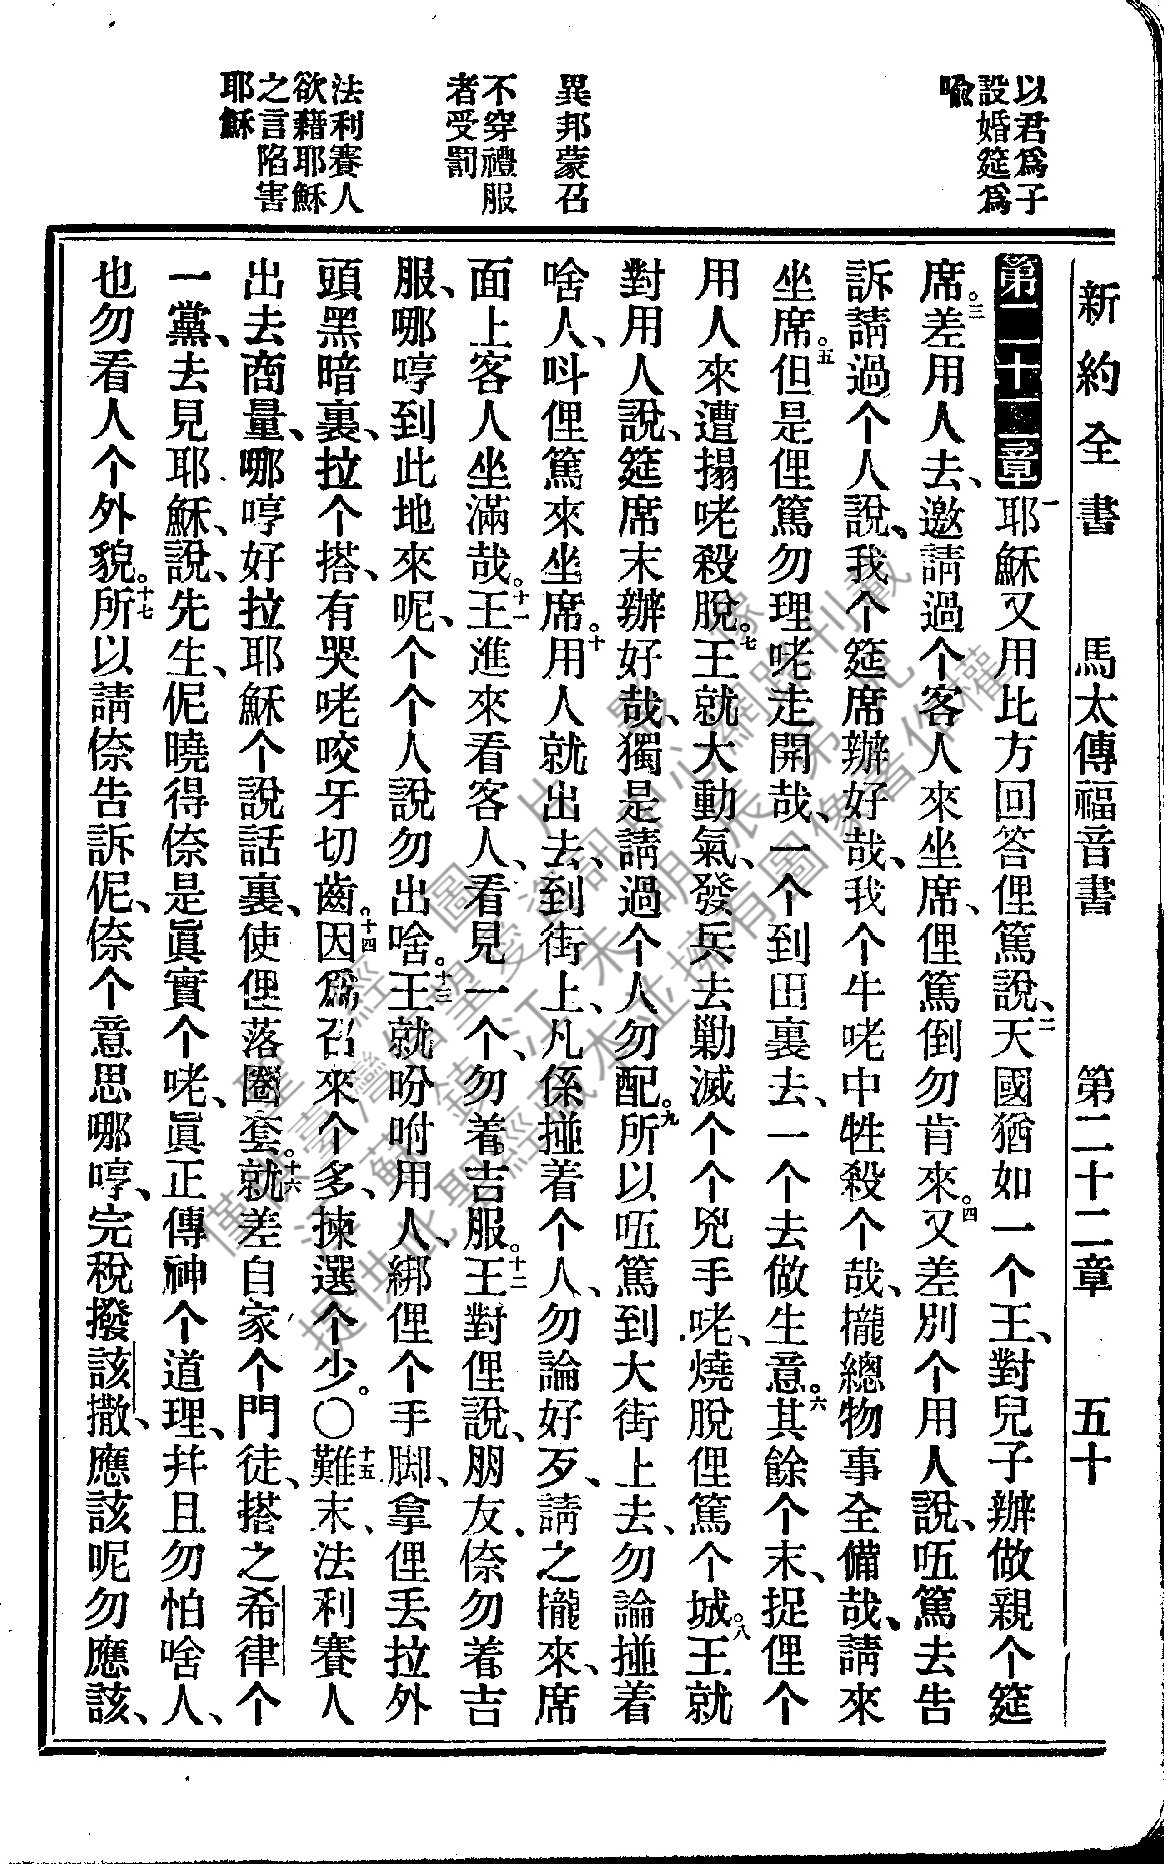 新約全書　馬太傳福音書　第二十二章　五十
以君爲子
設婚筵爲
喩
異邦蒙召
不穿禮服
者受罰
法利賽人
欲藉耶穌
之言陷害
耶穌
第二十二章 一耶穌又用比方回答俚篤說、二天國猶如一个王、對兒子辦做親个筵
席。三差用人去、邀請過个客人來坐席、俚篤倒勿肯來。四又差別个用人說、㕶篤去告
訴請過个人說、我个筵席辦好哉、我个牛咾中牲殺个哉、攏總物事全備哉、請來
坐席。五但是俚篤勿理咾走開哉、一个到田裏去、一个去做生意。六其餘个末、捉俚个
用人來遭搨咾殺脫。七王就大動氣、發兵去勦滅个个兇手咾、燒脫俚篤个城。八王就
對用人說、筵席末辦好哉、獨是請過个人勿配。九所以㕶篤到大街上去、勿論碰着
啥人、呌俚篤來坐席。十用人就出去、到街上、凡係碰着个人、勿論好歹、請之攏來、席
面上客人坐滿哉。十一王進來看客人、看見一个、勿着吉服。十二王對俚說、朋友、倷勿着吉
服、哪哼到此地來呢、个个人說勿出啥。十三王就吩咐用人、綁俚个手脚、拿俚丟拉外
頭黑暗裏、拉个搭、有哭咾咬牙切齒。十四因爲召來个多、揀選个少。〇十五難末、法利賽人
出去商量、哪哼好拉耶穌个說話裏、使俚落圈套。十六就差自家个門徒、搭之希律个
一黨、去見耶穌、說、先生、伲曉得倷是眞實个咾、眞正傳神个道理、幷且勿怕啥人、
也勿看人个外貌。十七所以請倷告訴伲、倷个意思哪哼、完稅撥該撒、應該呢勿應該、